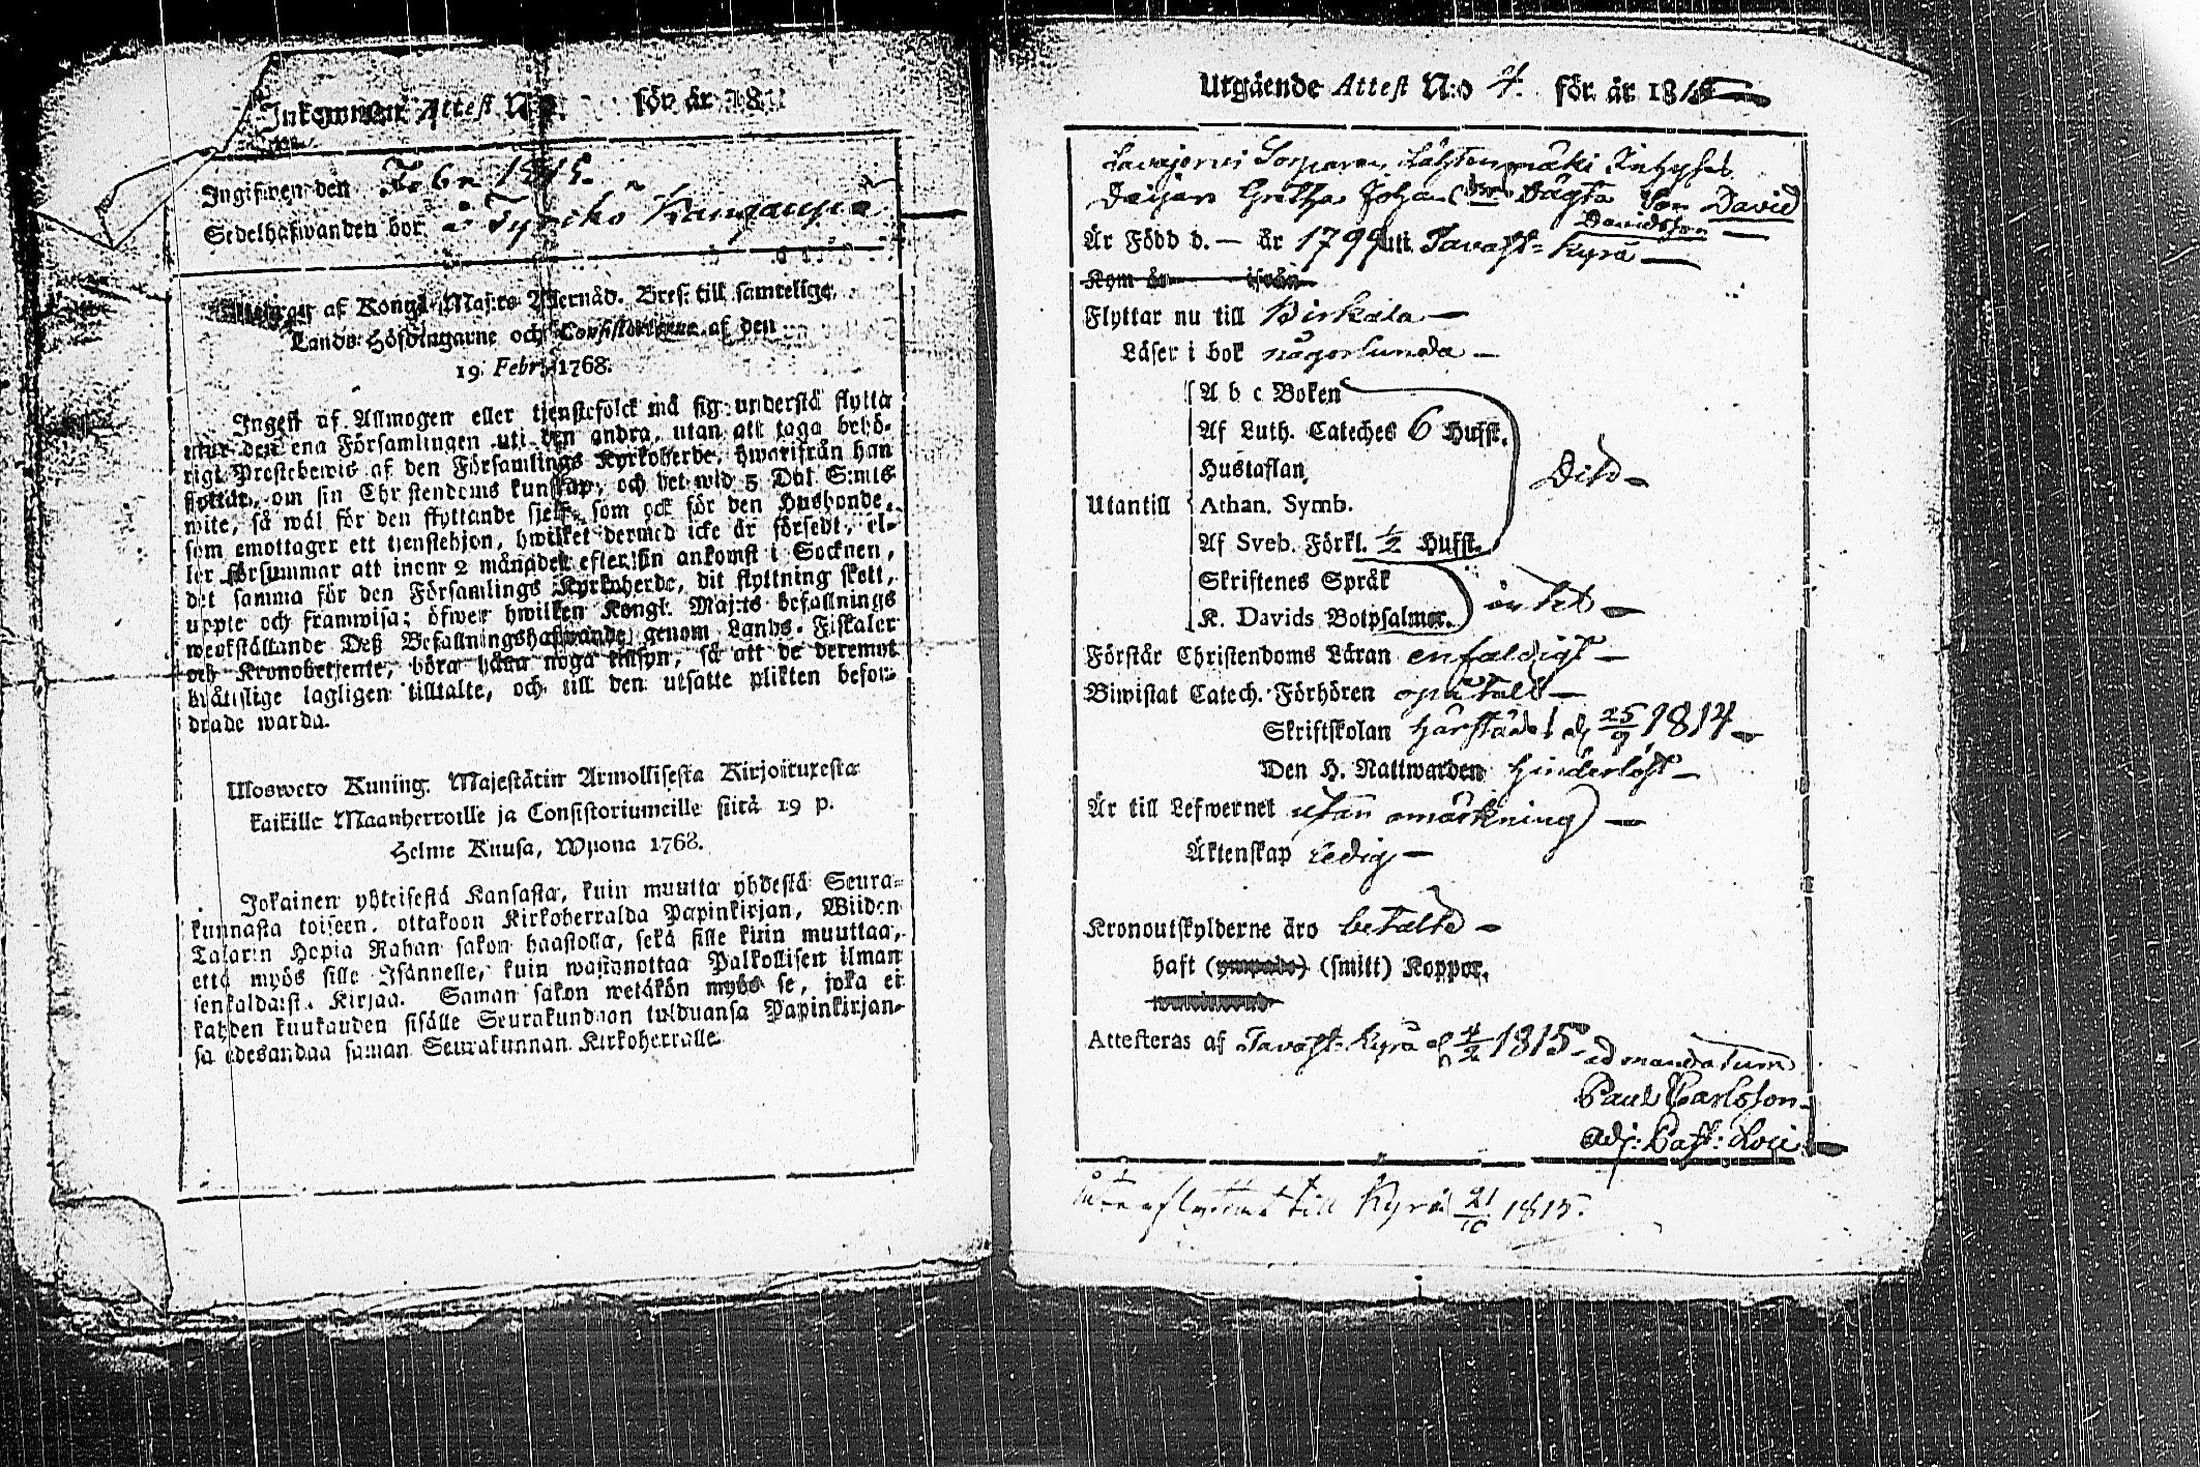 Inkommen Attest N:o för år 18
Ingifwen den Febr 1815.
Sedelhafwanden bor i Tyrcko Kangaspää
af Kongl. Maj:ts Bref till samtelige
Lands-Höfdingarne och Consistorierne af den
19 Febr. 1768.
Ingen af Allmogen eller tjenstefolck må sig understå flytta
utur den ena Församlingen uti den andra, utan att taga behö-
rigt Prestebewis af den Församlings Kyrkoherde, hwarifrån han
flyttar, om sin Christendoms kunskap, och det wid 5 Dal. S:mts
wite, så wäl för den flyttande sjelf, som ock för den Husbonde,
som emottager ett tjenstehjon, hwilket dermed icke är försedt, el-
ler försummar att inom 2 månader efter sin ankomst i Socknen,
det samma för den Församlings Kyrkoherde, dit flyttning skett,
uppte och framwisa; öfwer hwilken Kongl. Maj:ts befallnings
werkställande Deß Befallningshafwande, genom Lands-Fiskaler
och Kronobetjente, böra hålla noga tillsyn, så att de deremot
brättslige lagligen tilltalte, och till den utsatte plikten befor-
drade warda.
Ulosweto Kuning. Majestätin Armollisesta Kirjoituxesta
kaikille Maanherroille ja Consistoriumeille siitä 19 p.
Helme Kuusa, Wuona 1768.
Jokainen yhteisestä Kansasta, kuin muutta yhdestä Seura-
kunnasta toiseen, ottakoon Kirkoherralda Papinkirjan, Wiiden
Talarin Hopia Rahan sakon haastolla, sekä sille kuin muuttaa,
että myös sille Isännelle, kuin wastanottaa Palkollisen ilman
senkaldaist. Kirjaa. Saman sakon wetäkön myös se, joka ei
kahden kuukauden sisälle Seurakundaan tulduansa Papinkirjan-
sa edesandaa saman Seurakunnan Kirkoherralle.
Utgående Attest N:o 4. för år 1815
Lavajerwi Lähtenmäki Inhyses
Deijan Gretha Johans Dågta Son David
Davidsson
Är Född d. — år 1799 uti Tavast-Kyrö —
Kom år ifrån
Flyttar nu till Birkala —
Läser i bok någorlunda —
A b c Boken
Af Luth. Cateches 6 Hufst.
Hustaflan,
Utantill Athan. Symb.
Af Sveb. Förkl. ½ Hufst.
Skriftenes Språk
K. Davids Botpsalmer.
Förstår Christendoms Läran enfaldigt —
Biwistat Catech. Förhören opåtalt —
Skriftskolan härstädes d 25/9 1814 —
Den H. Nattwarden hinderlöst —
Är till Lefwernet utan anmärkning —
Äktenskap Ledig —
Kronoutskylderne äro betalte —
haft (ympade) (smitt) Koppor,
Attesteras af Tavast-Kyrö d 4/2 1815. ad mandatum
Paul Carlsson
adj: Past: Loci
till Kyrö 21/10 1815.